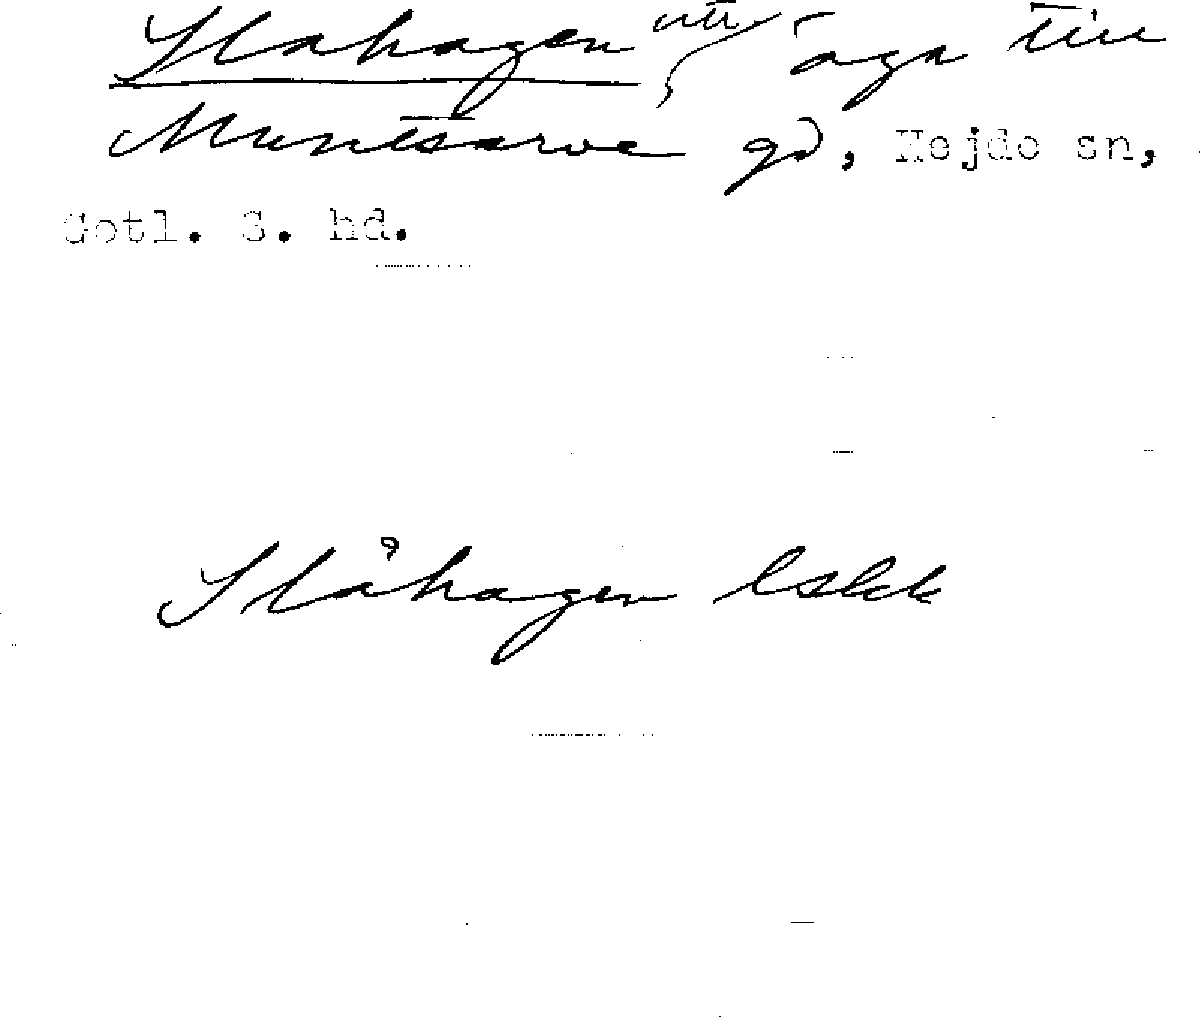 Slahagen utr äga till
Muntsarve gd, Hejde sn,
Gotl. S. hd.
Slåhagen lskk